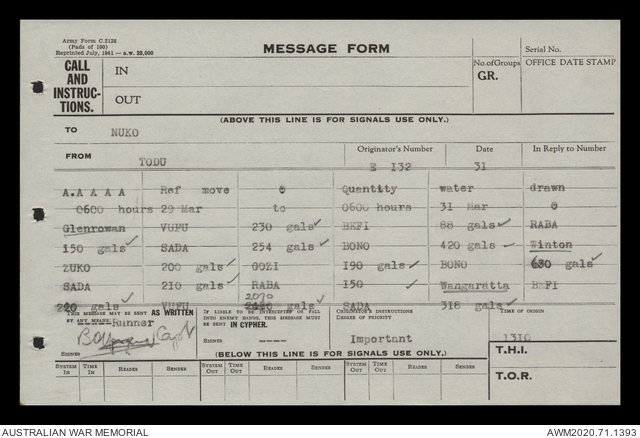 Army Form C.2128
(Pads of 100)
Reprinted July, 1941 — s.w. 25,000
MESSAGE FORM
Serial No.
CALL AND INSTRUC- TIONS.
IN
No. of Groups
GR.
OFFICE DATE STAMP
OUT
(ABOVE THIS LINE IS FOR SIGNALS USE ONLY.)
TO NUKO
FROM TODU
Originator's Number E 132
Date 31
In Reply to Number
A.A A A A Ref move 0 Quantity water drawn
0600 hours 29 Mar to 0600 hours 31 Mar 0
Glenrowan VUFU 230 gals ✓ BEFI 88 gals ✓ RABA
150 gals ✓ SADA 254 gals ✓ BONO 420 gals ✓ Winton
ZUKO 200 gals ✓ GOZI 190 gals ✓ BONO 630 gals ✓
SADA 210 gals ✓ RABA 150 ✓ Wangaratta BEFI
gals ✓ VUFU 2070 gals SADA 318 gals ✓
THIS MESSAGE MAY BE SENT AS WRITTEN BY ANY MEANS.
Runner
Capt
SIGNED
IF LIABLE TO BE INTERCEPTED OR FALL INTO ENEMY HANDS, THIS MESSAGE MUST BE SENT IN CYPHER.
SIGNED ----
ORIGINATOR'S INSTRUCTIONS
DEGREE OF PRIORITY
Important
TIME OF ORIGIN
1310
(BELOW THIS LINE IS FOR SIGNALS USE ONLY.)
T.H.I.
T.O.R.
SYSTEM IN TIME IN READER SENDER SYSTEM OUT TIME OUT READER SENDER SYSTEM OUT TIME OUT READER SENDER
AUSTRALIAN WAR MEMORIAL
AWM2020.71.1393